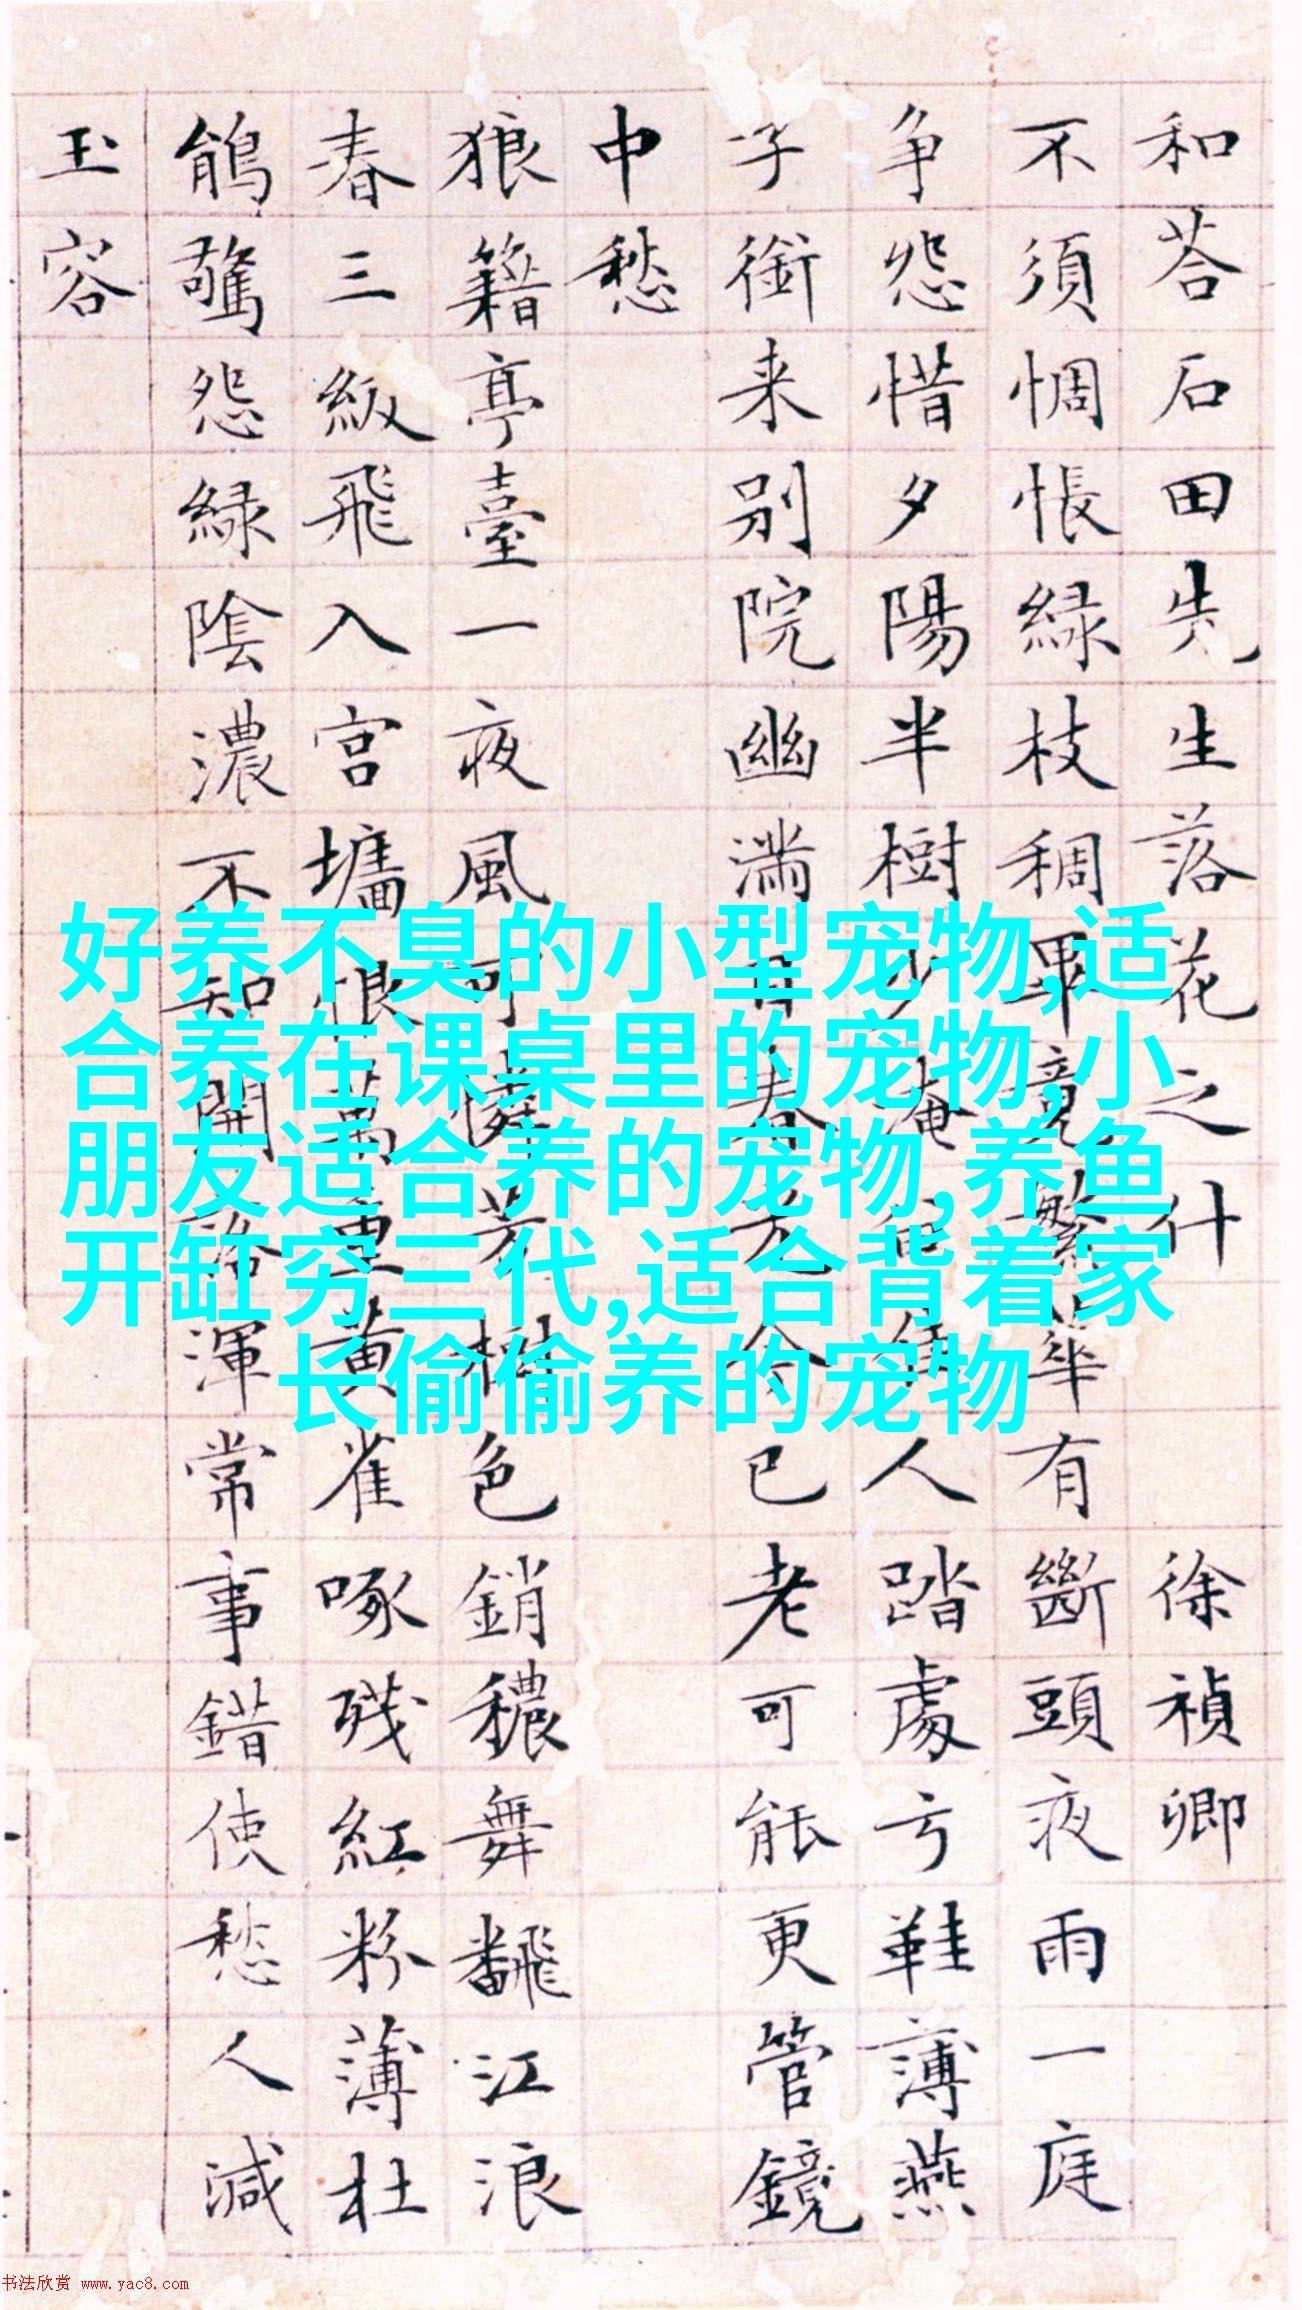 和荅石田先生落花之什 徐禎卿
不須惆悵綠枝稠畢竟繁華有斷頭夜雨一庭
争怨惜夕陽半樹少淹人踏處弓鞋薄燕
子銜来别院幽滿目春光今已老可能更管鏡
中愁
狼籍亭臺一夜風可憐芳樹色銷穠舞飜江浪
春三級飛入宫墉恨萬重黄雀啄殘紅粉薄杜
鵑驚怨綠陰濃不知開落渾常事錯使愁人減
玉容
好养不臭的小型宠物,适
合养在课桌里的宠物,小
朋友适合养的宠物,养鱼
开缸穷三代,适合背着家
长偷偷养的宠物
书法欣赏 www.yac8.com